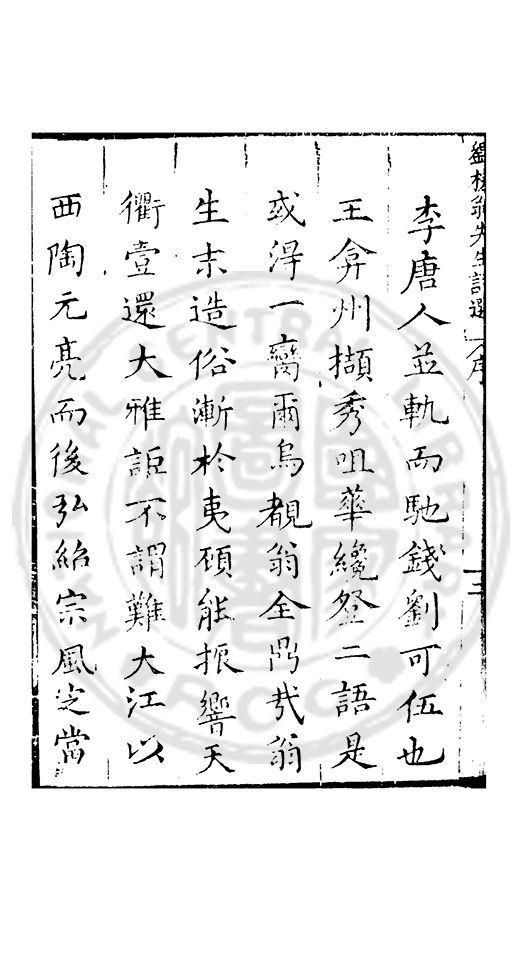 劉槎翁先生詩選 序 三
李唐人並軌而馳錢劉可伍也
王弇州擷秀咀華纔登二語是
或得一臠爾烏覩翁全鼎哉翁
生末造俗漸於夷頎能振響天
衢壹還大雅詎不謂難大江以
西陶元亮而後弘紹宗風定當